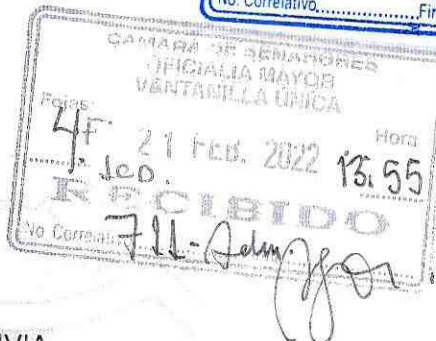 No. Correlativo..................Fir
CAMARA DE SENADORES
OFICIALIA MAYOR
VENTANILLA UNICA
Fojas: Hora
4F. 21 FEB. 2022 13:55
1 CD.
RECIBIDO
No Correlati